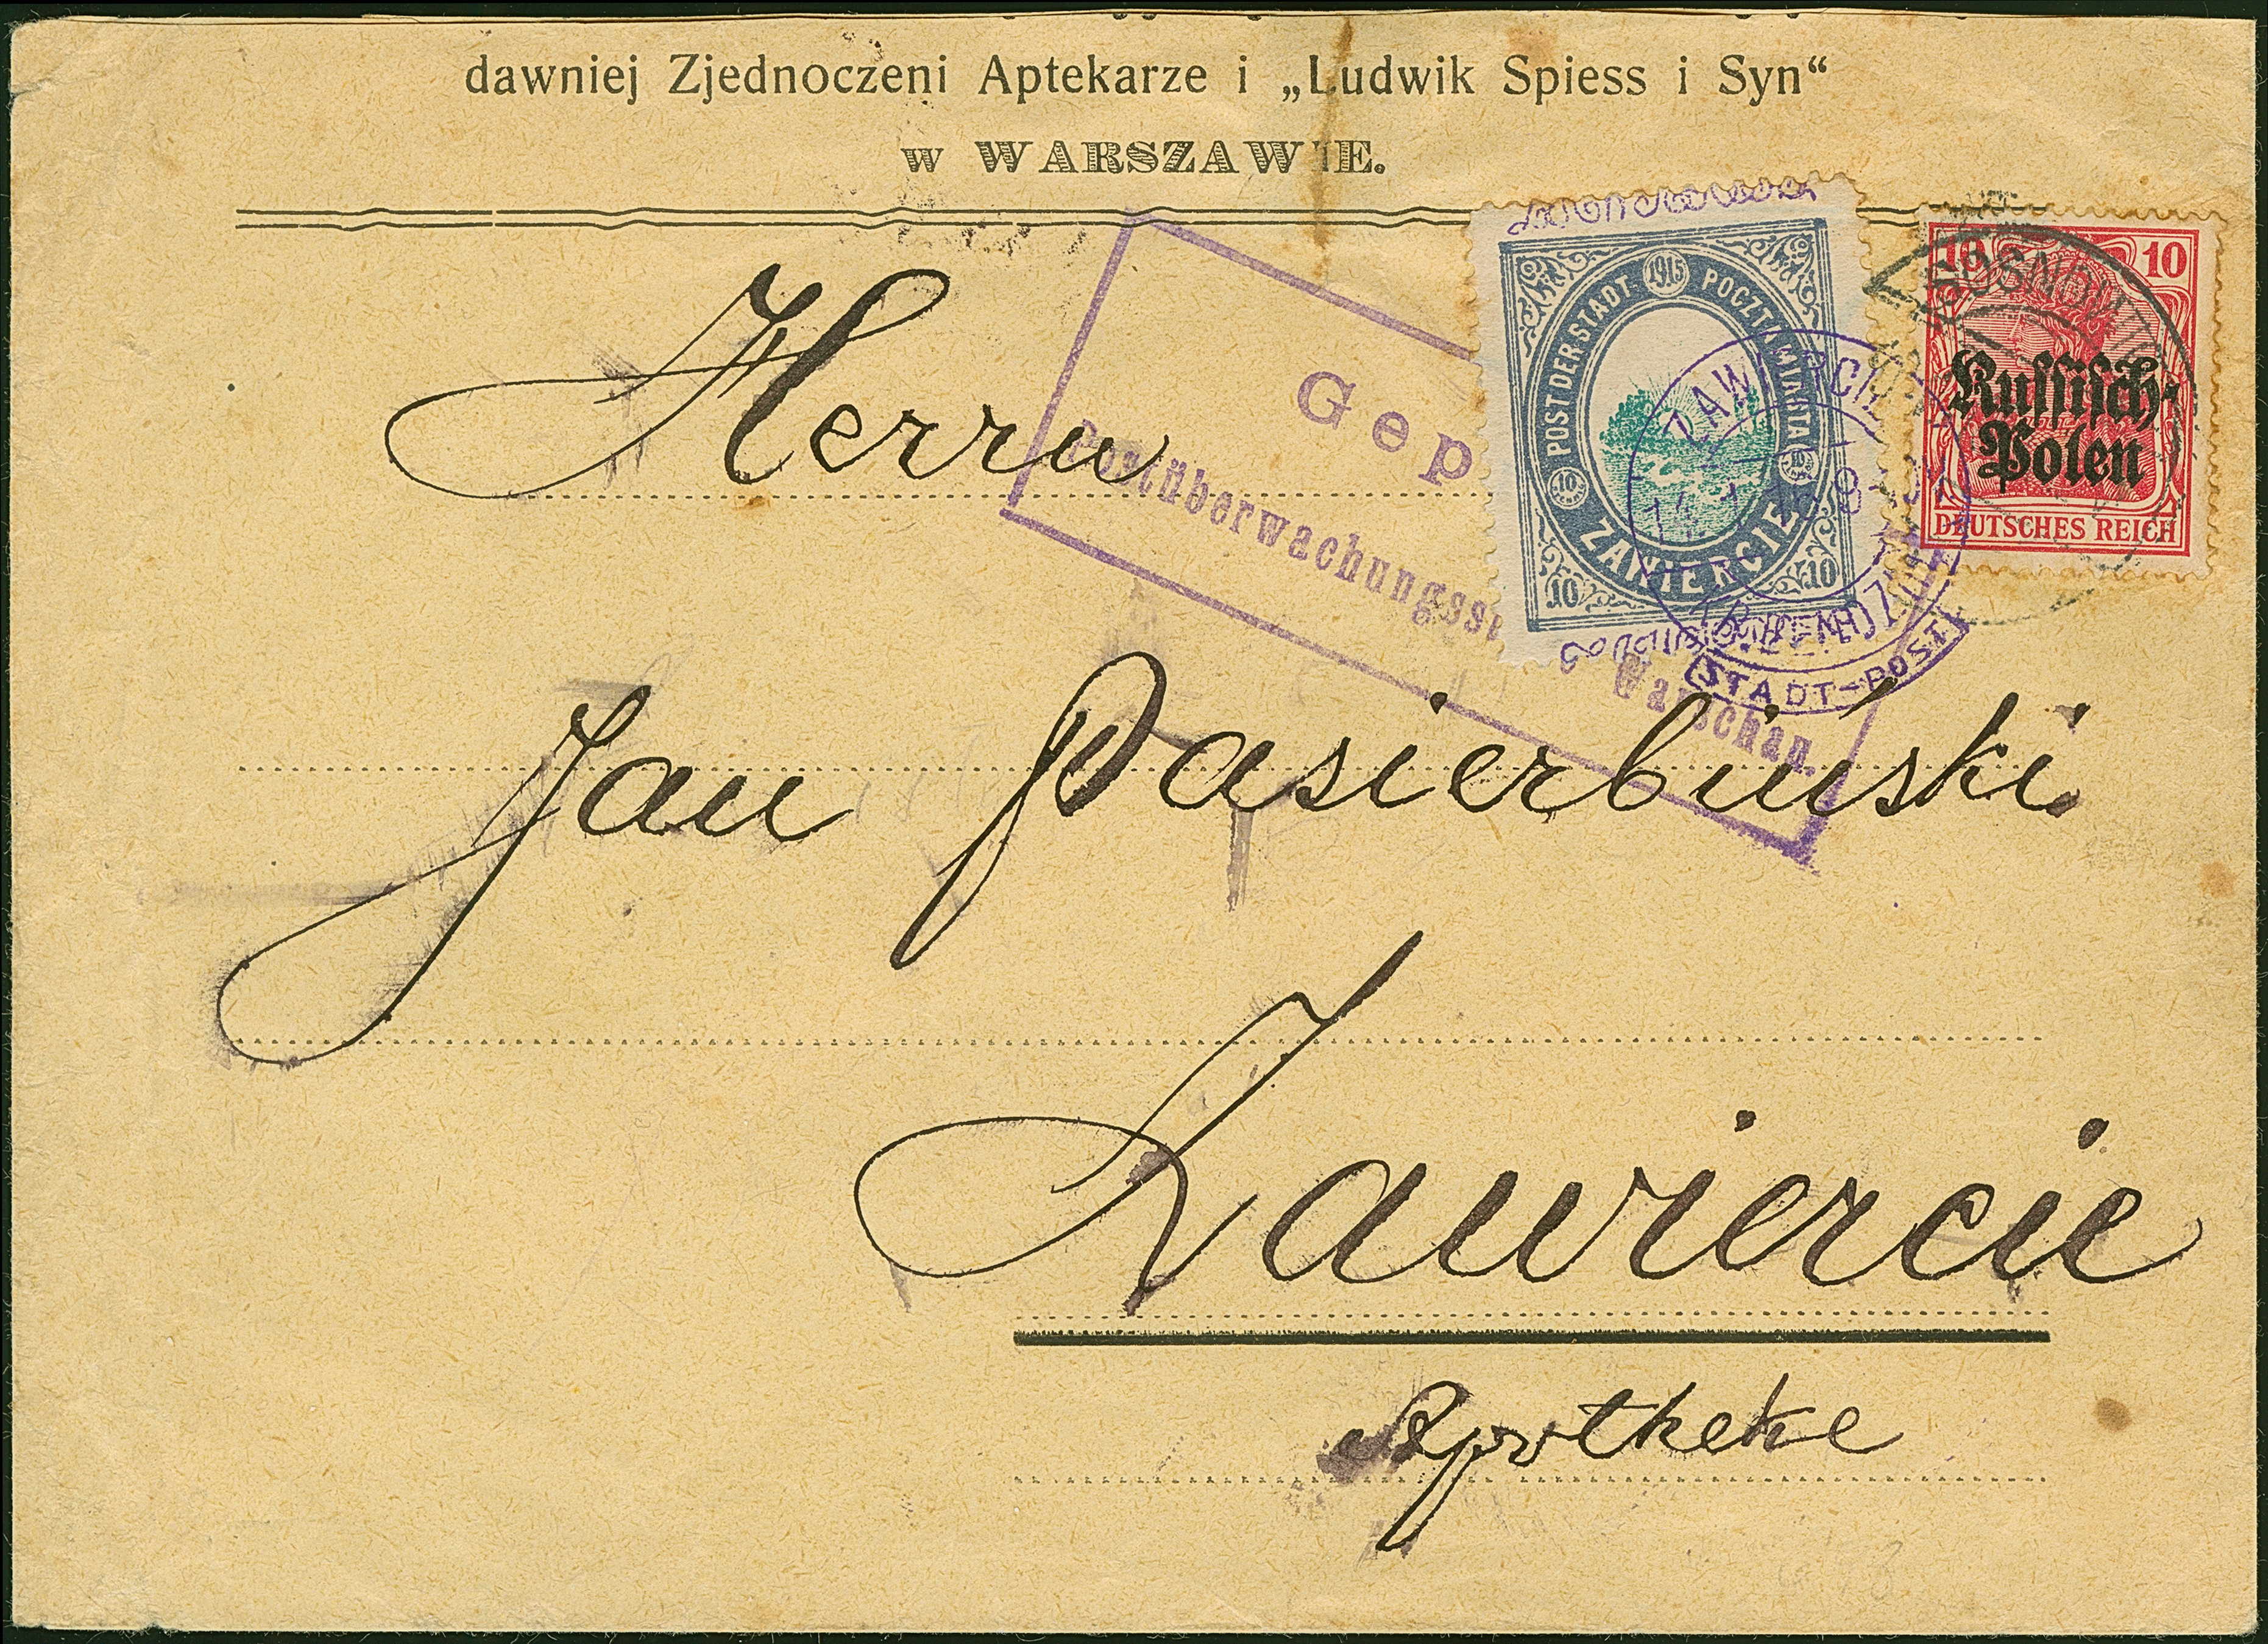 dawniej Zjednoczeni Aptekarze i „Ludwik Spiess i Syn“
w WARSZAWIE.
Gep
Postüberwachungsst
Warschau.
1915
POST DER STADT
POCZTA MIASTA
10 10
ZAWIERCIE
10 10
ZAWIERCIE
(KR. BENDZIN)
STADT-POST
SOSNOWICE
10 10
Russisch-
Polen
DEUTSCHES REICH
Herrn
Jan Pasierbiński
Zawiercie
Apotheke